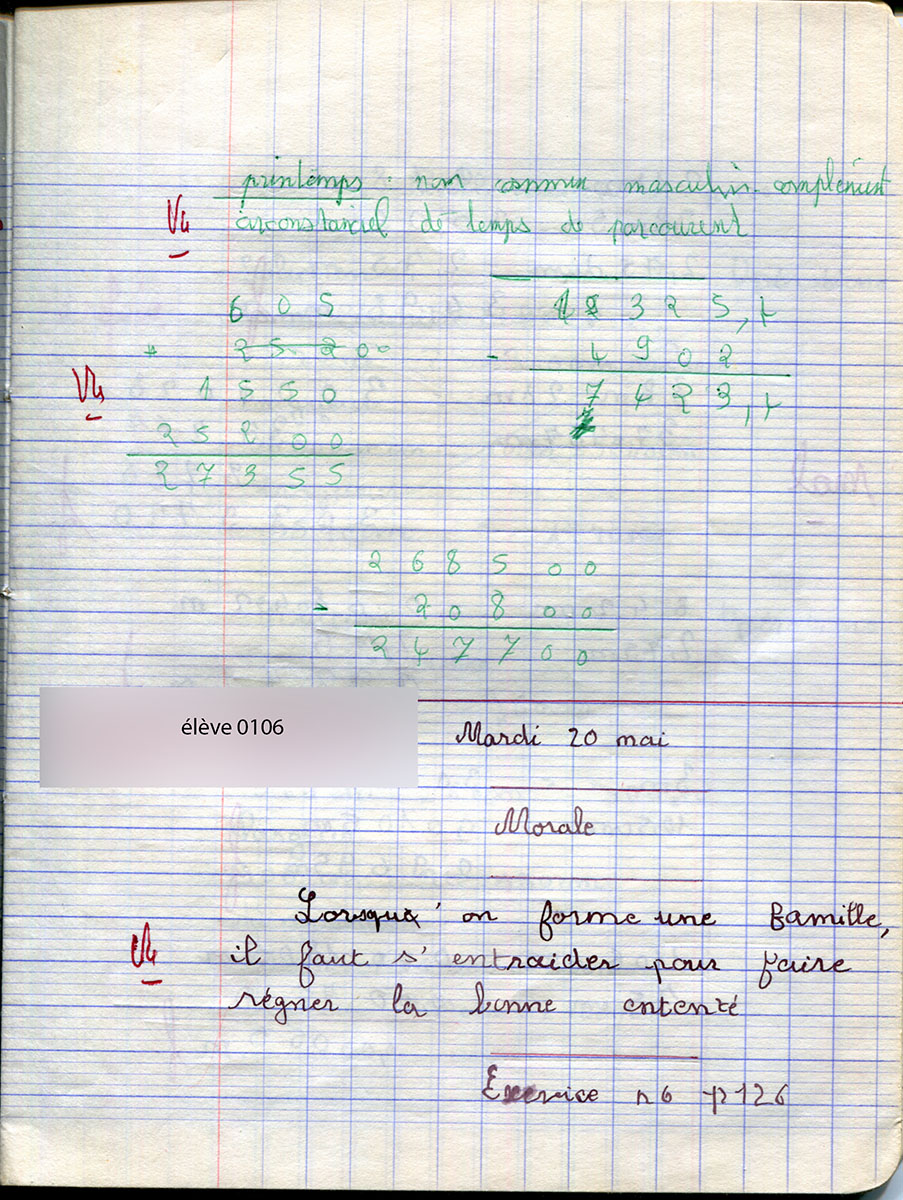 printemps : nom commun masculin complément
Vu circonstanciel de temps de parcourent
605
+ 25 200
Vu 1550
25200
27355
12325,
- 4902
7423,
268500
- 20800
247700
élève 0106
Mardi 20 mai
Morale
Lorsqu'on forme une famille,
Vu il faut s'entraider pour faire
régner la bonne entente
Exercice n 6 p 126